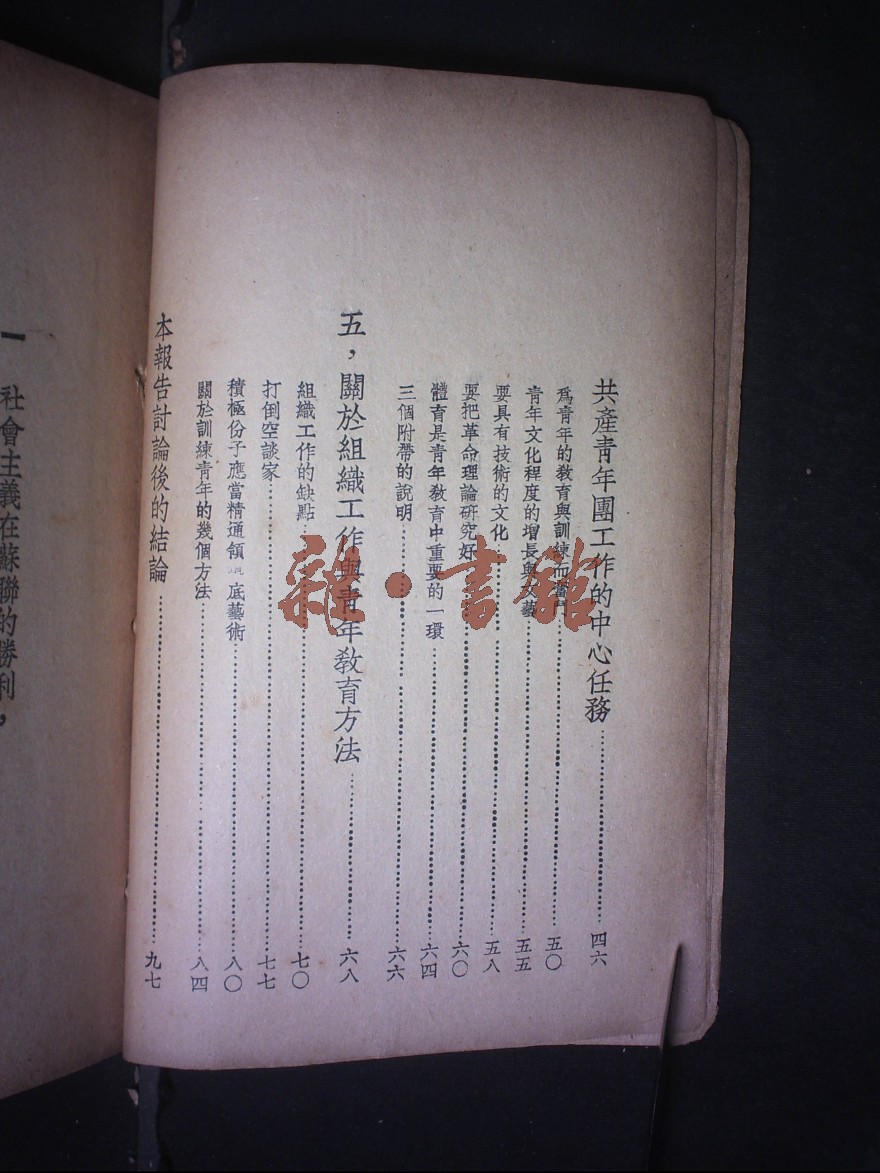 共產青年團工作的中心任務……四六
爲青年的教育與訓練而奮鬥……五〇
青年文化程度的增長與文藝……五五
要具有技術的文化……五八
要把革命理論研究好……六〇
體育是青年教育中重要的一環……六四
三個附帶的說明……六六
五，關於組織工作與青年教育方法……六八
組織工作的缺點……七〇
打倒空談家……七七
積極份子應當精通領 底藝術……八〇
關於訓練青年的幾個方法……八四
本報告討論後的結論……九七
一 社會主義在蘇聯的勝利，
雜·書館